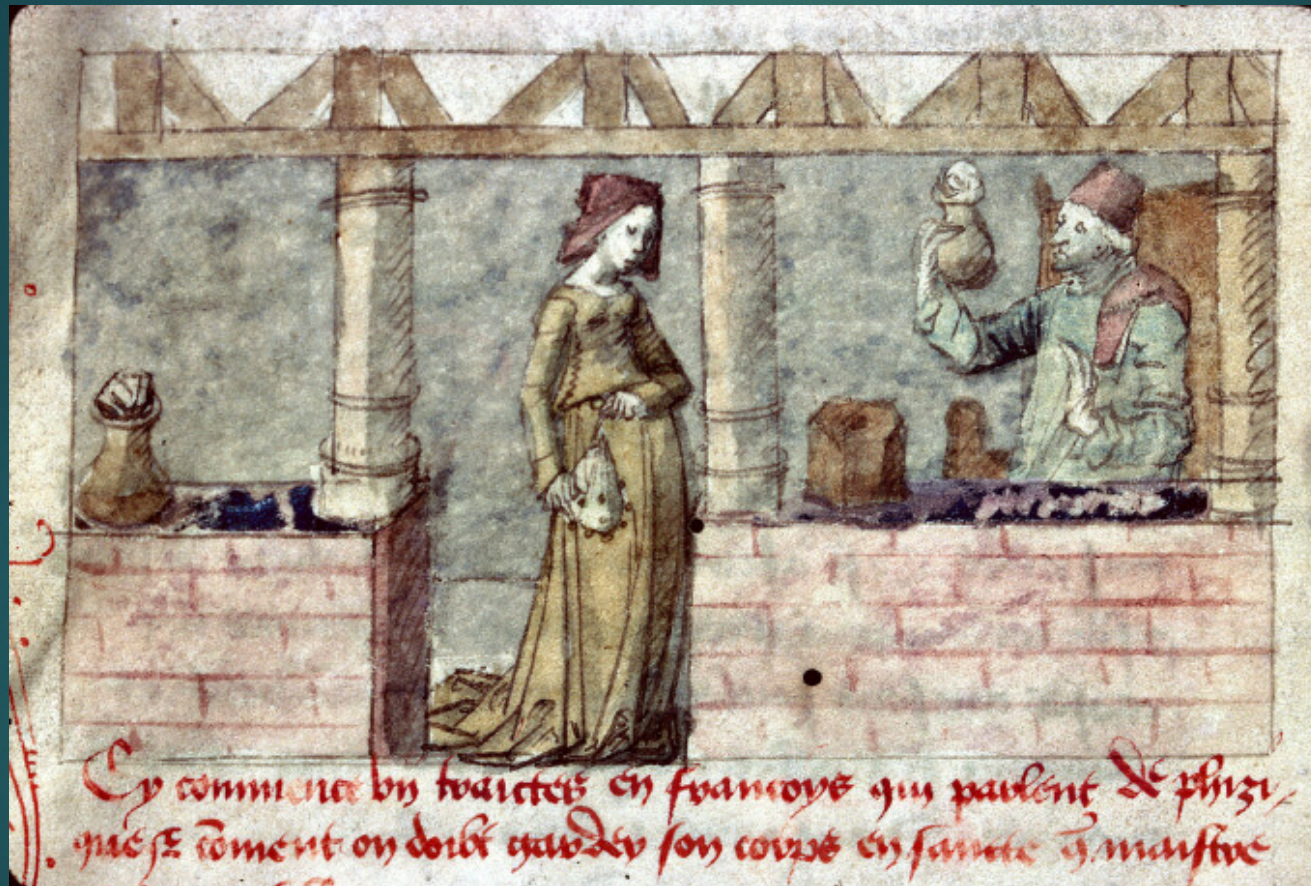 Cy commence vn traictes en francoys qui parlent de phizi-
que et cōment on doibt garder son corps en sancte q̄ maistre